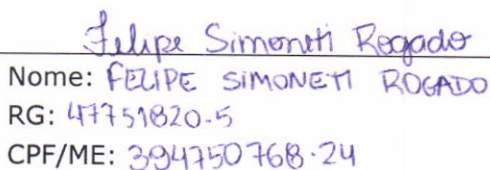 Felipe Simoneti Rogado
Nome: FELIPE SIMONETI ROGADO
RG: 47751820-5
CPF/ME: 394750768-24